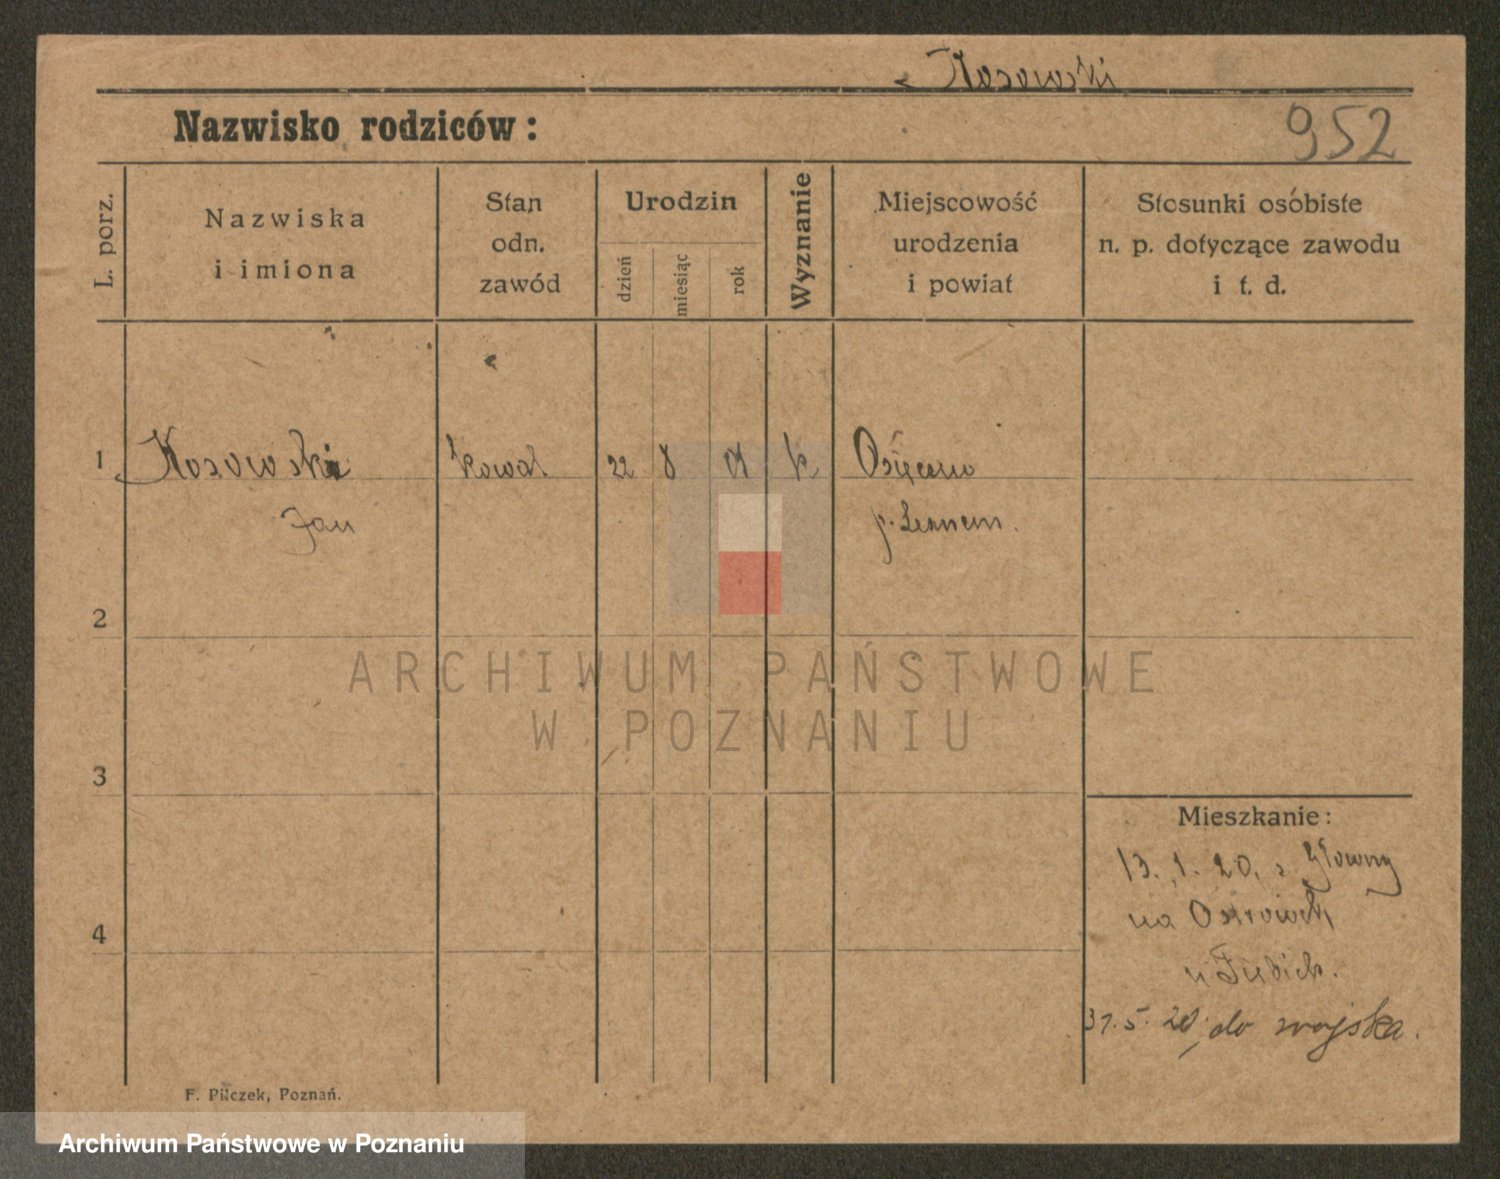 Kosowski
Nazwisko rodziców:
952
L. porz.
Nazwiska
i imiona
Stan
odn.
zawód
Urodzin
dzień
miesiąc
rok
Wyznanie
Miejscowość
urodzenia
i powiat
Stosunki osobiste
n. p. dotyczące zawodu
i t. d.
1
Kosowski
kowal
22
8
01
k
Osieczna
Jan
p.
2
ARCHIWUM PAŃSTWOWE
W POZNANIU
3
Mieszkanie:
13. 1. 20. z Główny
na Ostrówek
4
u
31. 5. 20. do wojska.
F. Pilczek, Poznań.
Archiwum Państwowe w Poznaniu